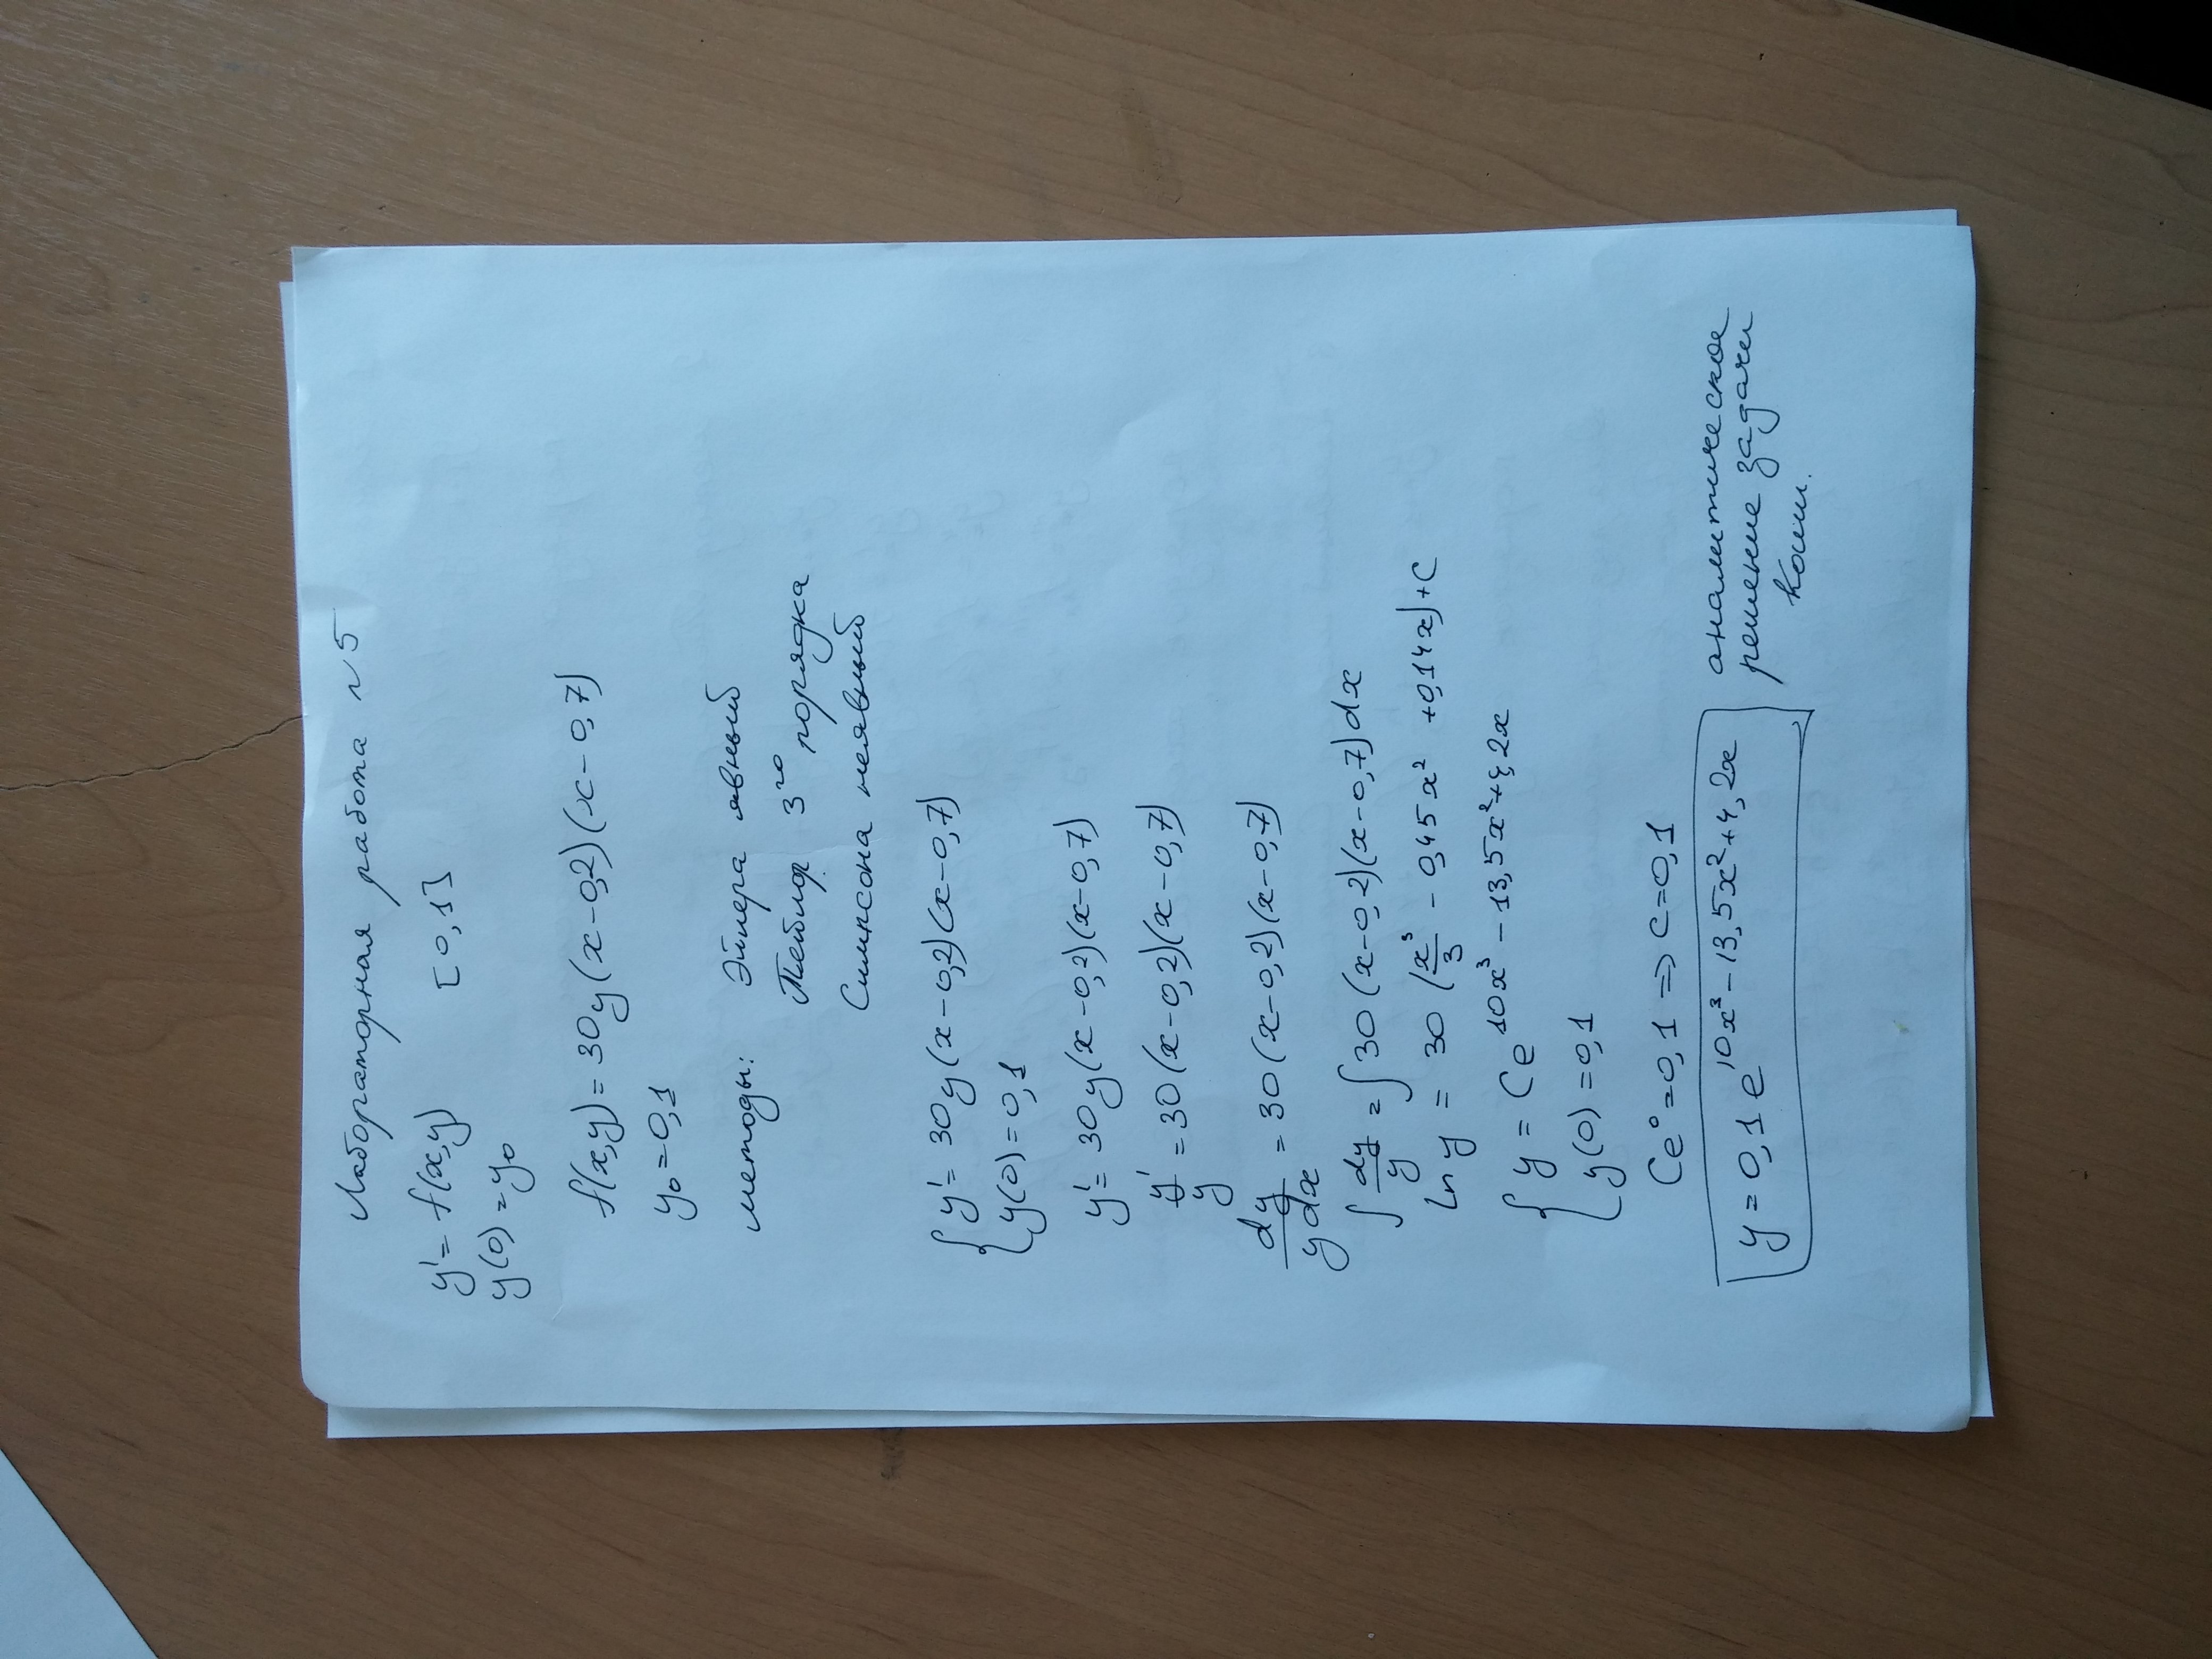 Лабораторная работа №5
y' = f(x,y) [0,1]
y(0) = y₀
f(x,y) = 30y(x-0,2)(x-0,7)
y₀ = 0,1
методы: Эйлера явный
Тейлор 3го порядка
Симпсона неявный
{ y' = 30y(x-0,2)(x-0,7)
y(0) = 0,1
y' = 30y(x-0,2)(x-0,7)
y'/y = 30(x-0,2)(x-0,7)
dy/ydx = 30(x-0,2)(x-0,7)
∫ dy/y = ∫ 30(x-0,2)(x-0,7)dx
ln y = 30 (x³/3 - 0,45x² + 0,14x) + C
{ y = Ce^(10x³ - 13,5x² + 4,2x)
y(0) = 0,1
Ce⁰ = 0,1 ⇒ C = 0,1
y = 0,1 e^(10x³ - 13,5x² + 4,2x)
аналитическое
решение задачи
Коши.